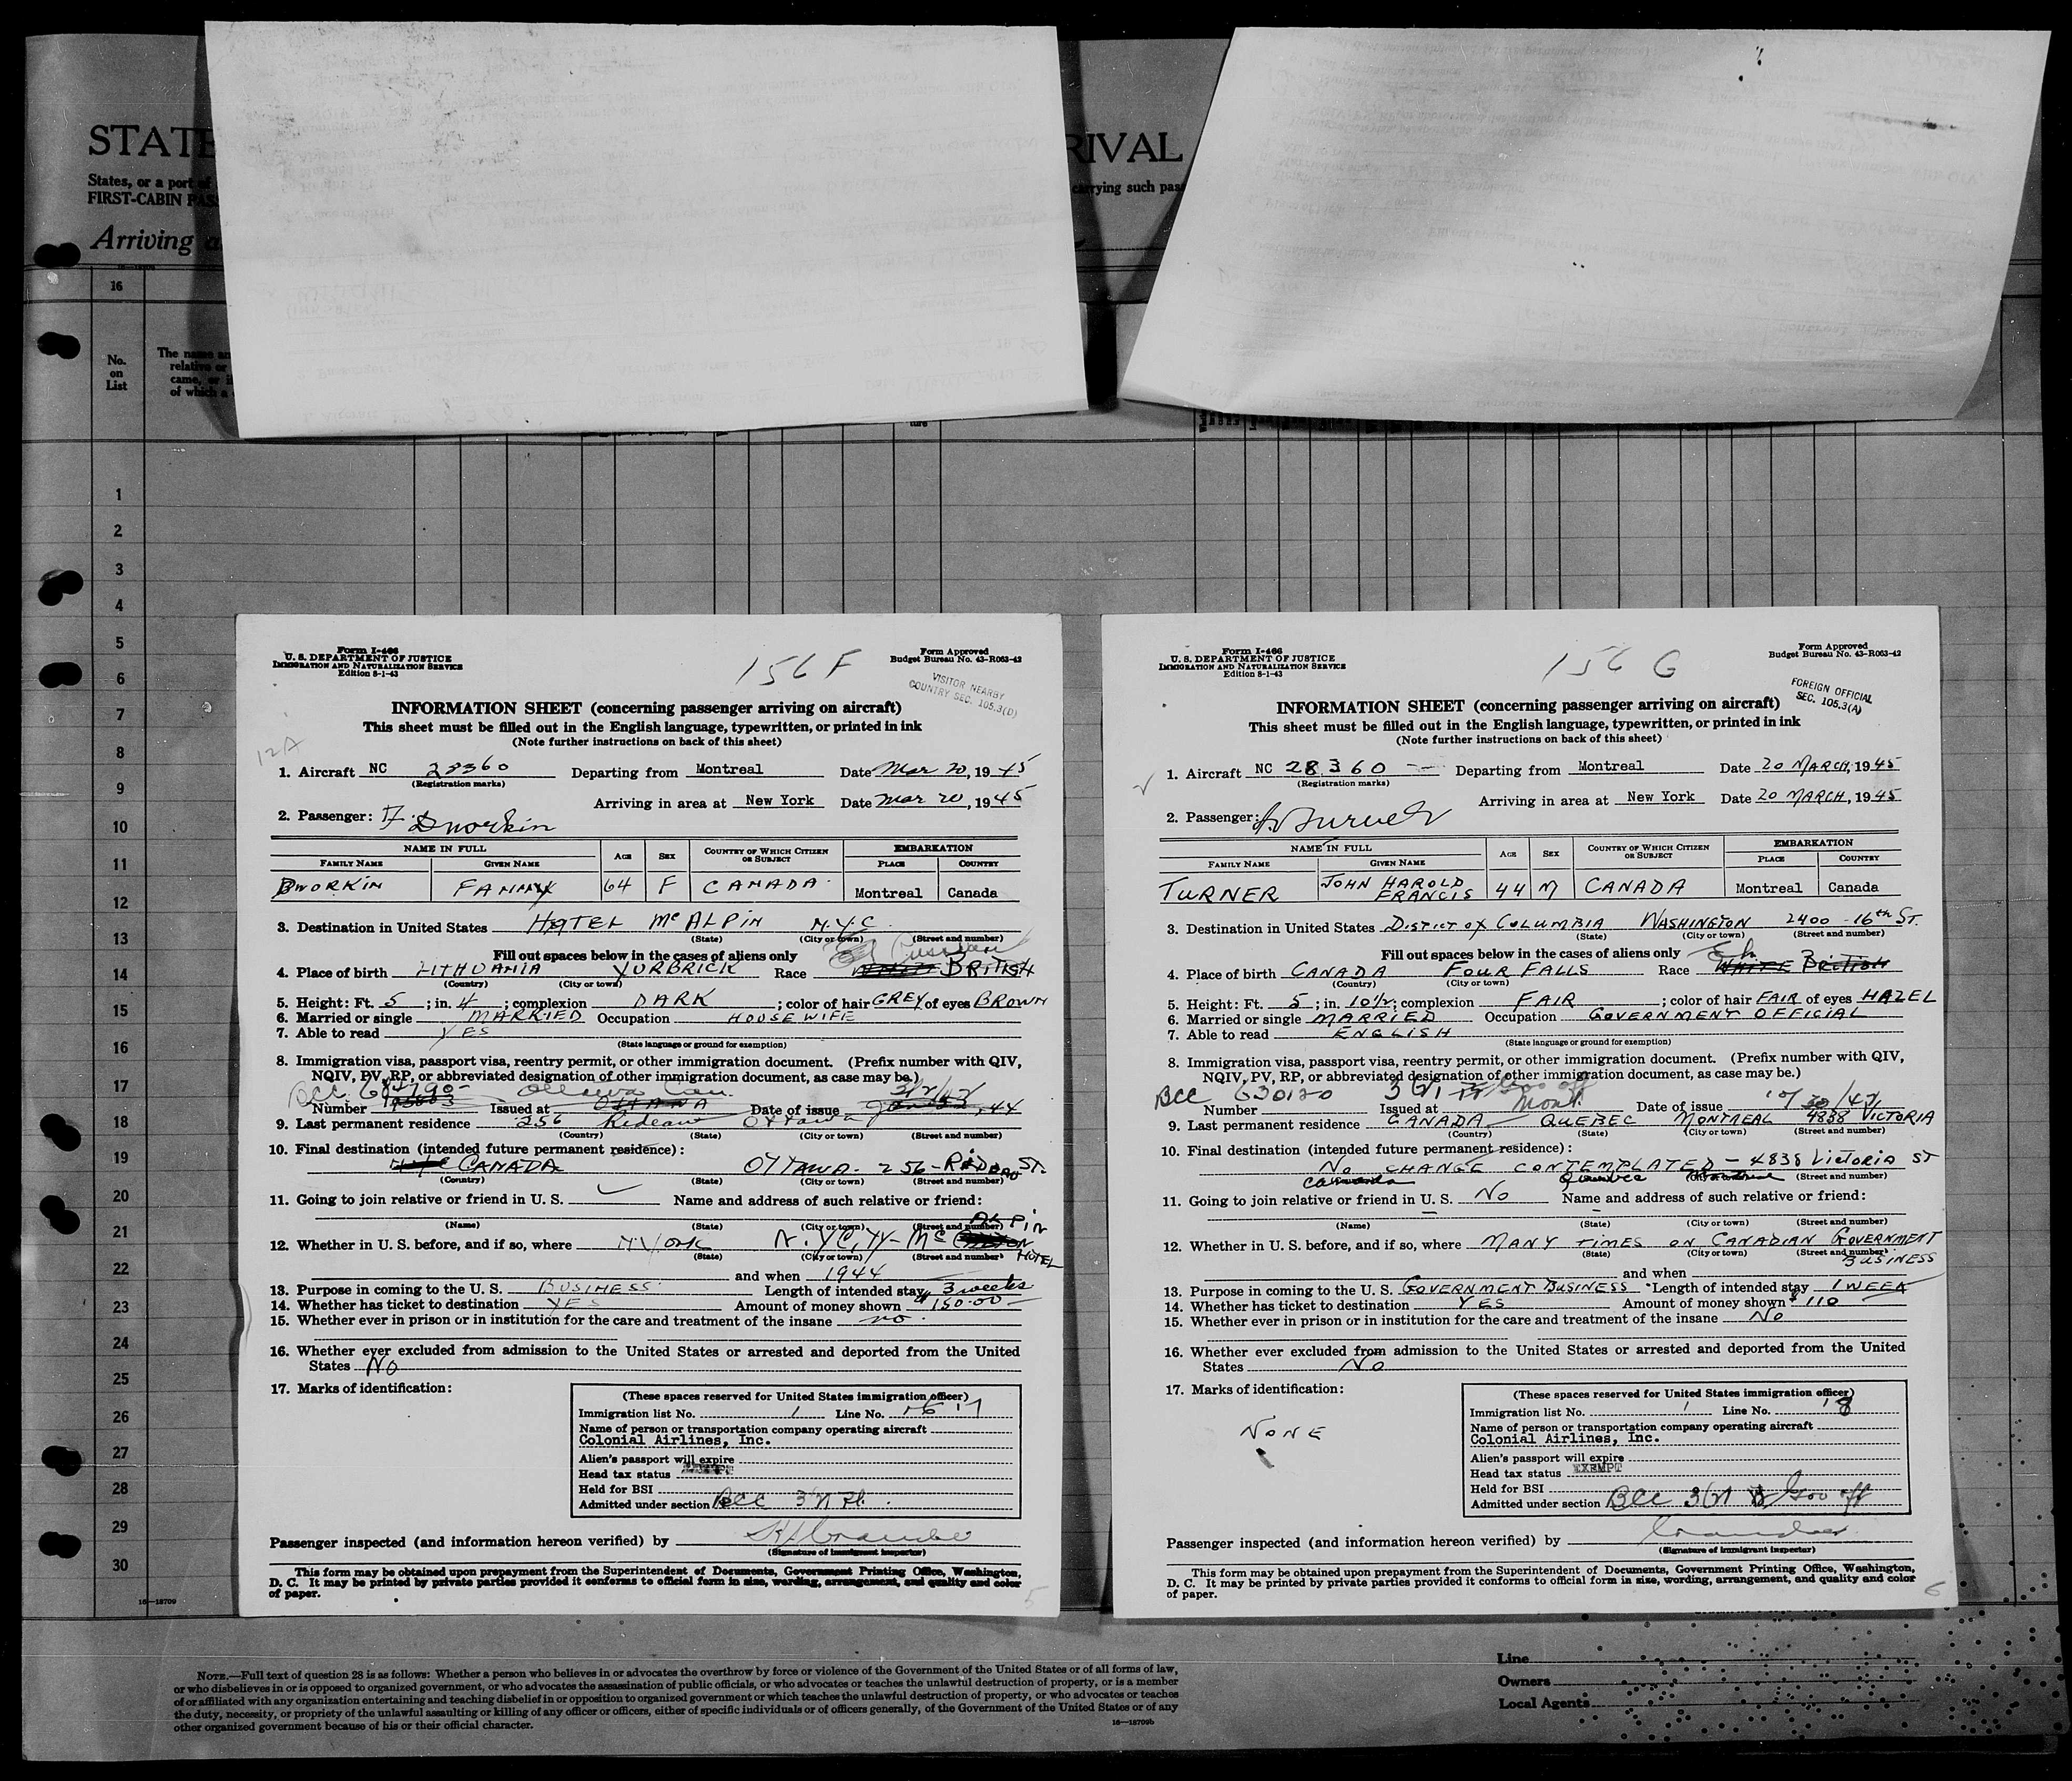 STATE
RIVAL
States, or a port of
carrying such pas
FIRST-CABIN PAS
Arriving a
16
No.
on
List
The name an
relative or
came, or i
of which a
ture
1
2
3
4
5
6
7
8
9
10
11
12
13
14
15
16
17
18
19
20
21
22
23
24
25
26
27
28
29
30
16—18709
Form I-466
U. S. DEPARTMENT OF JUSTICE
IMMIGRATION AND NATURALIZATION SERVICE
Edition 8-1-43
156 F
Form Approved
Budget Bureau No. 43-R063-42
VISITOR NEARBY
COUNTRY SEC. 105.3(D)
INFORMATION SHEET (concerning passenger arriving on aircraft)
This sheet must be filled out in the English language, typewritten, or printed in ink
(Note further instructions on back of this sheet)
12A
1. Aircraft NC 28360 Departing from Montreal Date Mar 20, 1945
(Registration marks)
Arriving in area at New York Date Mar 20, 1945
2. Passenger: F. Dworkin
NAME IN FULL AGE SEX COUNTRY OF WHICH CITIZEN OR SUBJECT EMBARKATION
FAMILY NAME GIVEN NAME PLACE COUNTRY
DWORKIN FANNY 64 F CANADA Montreal Canada
3. Destination in United States HOTEL McALPIN N.Y.C.
(State) (City or town) (Street and number)
Fill out spaces below in the cases of aliens only
4. Place of birth LITHUANIA YURBRICK Race BRITISH
(Country) (City or town)
5. Height: Ft. 5; in. 4; complexion DARK; color of hair GREY of eyes BROWN
6. Married or single MARRIED Occupation HOUSEWIFE
7. Able to read YES
(State language or ground for exemption)
8. Immigration visa, passport visa, reentry permit, or other immigration document. (Prefix number with QIV,
NQIV, PV, RP, or abbreviated designation of other immigration document, as case may be.)
BCC Ottawa Can.
Number Issued at OTTAWA Date of issue 44
9. Last permanent residence 256 Rideau Ottawa
(Country) (State) (City or town) (Street and number)
10. Final destination (intended future permanent residence):
CANADA OTTAWA - 256 - RIDEAU ST.
(Country) (State) (City or town) (Street and number)
11. Going to join relative or friend in U. S. Name and address of such relative or friend:
(Name) (State) (City or town) (Street and number)
12. Whether in U. S. before, and if so, where N York N.Y.CITY - Mc ALPIN HOTEL
(State) (City or town) (Street and number)
and when 1944
13. Purpose in coming to the U. S. BUSINESS Length of intended stay 3 weeks
14. Whether has ticket to destination YES Amount of money shown $150.00
15. Whether ever in prison or in institution for the care and treatment of the insane no.
16. Whether ever excluded from admission to the United States or arrested and deported from the United
States NO
17. Marks of identification:
(These spaces reserved for United States immigration officer)
Immigration list No. 1 Line No. 17
Name of person or transportation company operating aircraft
Colonial Airlines, Inc.
Alien's passport will expire
Head tax status EXEMPT
Held for BSI
Admitted under section BCC 3(2)
Passenger inspected (and information hereon verified) by
(Signature of immigrant inspector)
This form may be obtained upon prepayment from the Superintendent of Documents, Government Printing Office, Washington,
D. C. It may be printed by private parties provided it conforms to official form in size, wording, arrangement, and quality and color
of paper.
5
Form I-466
U. S. DEPARTMENT OF JUSTICE
IMMIGRATION AND NATURALIZATION SERVICE
Edition 8-1-43
156 G
Form Approved
Budget Bureau No. 43-R063-42
FOREIGN OFFICIAL
SEC. 105.3(A)
INFORMATION SHEET (concerning passenger arriving on aircraft)
This sheet must be filled out in the English language, typewritten, or printed in ink
(Note further instructions on back of this sheet)
1. Aircraft NC 28360 Departing from Montreal Date 20 MARCH, 1945
(Registration marks)
Arriving in area at New York Date 20 MARCH, 1945
2. Passenger: Turner
NAME IN FULL AGE SEX COUNTRY OF WHICH CITIZEN OR SUBJECT EMBARKATION
FAMILY NAME GIVEN NAME PLACE COUNTRY
TURNER JOHN HAROLD FRANCIS 44 M CANADA Montreal Canada
3. Destination in United States DISTICT OF COLUMBIA WASHINGTON 2400 - 16th ST.
(State) (City or town) (Street and number)
Fill out spaces below in the cases of aliens only
4. Place of birth CANADA FOUR FALLS Race WHITE BRITISH
(Country) (City or town)
5. Height: Ft. 5; in. 10 1/2; complexion FAIR; color of hair FAIR of eyes HAZEL
6. Married or single MARRIED Occupation GOVERNMENT OFFICIAL
7. Able to read ENGLISH
(State language or ground for exemption)
8. Immigration visa, passport visa, reentry permit, or other immigration document. (Prefix number with QIV,
NQIV, PV, RP, or abbreviated designation of other immigration document, as case may be.)
BCC 630120 3(2) Gov off
Number Issued at Mont. Date of issue
9. Last permanent residence CANADA QUEBEC MONTREAL 4838 VICTORIA
(Country) (State) (City or town) (Street and number)
10. Final destination (intended future permanent residence):
NO CHANGE CONTEMPLATED - 4838 VICTORIA ST
Canada Quebec Montreal
(City or town) (Street and number)
11. Going to join relative or friend in U. S. NO Name and address of such relative or friend:
(Name) (State) (City or town) (Street and number)
12. Whether in U. S. before, and if so, where MANY TIMES ON CANADIAN GOVERNMENT
(State) (City or town) (Street and number)
BUSINESS
and when
13. Purpose in coming to the U. S. GOVERNMENT BUSINESS Length of intended stay 1 WEEK
14. Whether has ticket to destination YES Amount of money shown $110
15. Whether ever in prison or in institution for the care and treatment of the insane NO
16. Whether ever excluded from admission to the United States or arrested and deported from the United
States NO
17. Marks of identification:
NONE
(These spaces reserved for United States immigration officer)
Immigration list No. 1 Line No. 18
Name of person or transportation company operating aircraft
Colonial Airlines, Inc.
Alien's passport will expire
Head tax status EXEMPT
Held for BSI
Admitted under section BCC 3(2) Gov off
Passenger inspected (and information hereon verified) by
(Signature of immigrant inspector)
This form may be obtained upon prepayment from the Superintendent of Documents, Government Printing Office, Washington,
D. C. It may be printed by private parties provided it conforms to official form in size, wording, arrangement, and quality and color
of paper.
6
NOTE.—Full text of question 28 is as follows: Whether a person who believes in or advocates the overthrow by force or violence of the Government of the United States or of all forms of law,
or who disbelieves in or is opposed to organized government, or who advocates the assassination of public officials, or who advocates or teaches the unlawful destruction of property, or is a member
of or affiliated with any organization entertaining and teaching disbelief in or opposition to organized government or which teaches the unlawful destruction of property, or who advocates or teaches
the duty, necessity, or propriety of the unlawful assaulting or killing of any officer or officers, either of specific individuals or of officers generally, of the Government of the United States or of any
other organized government because of his or their official character.
16—18709b
Line
Owners
Local Agents